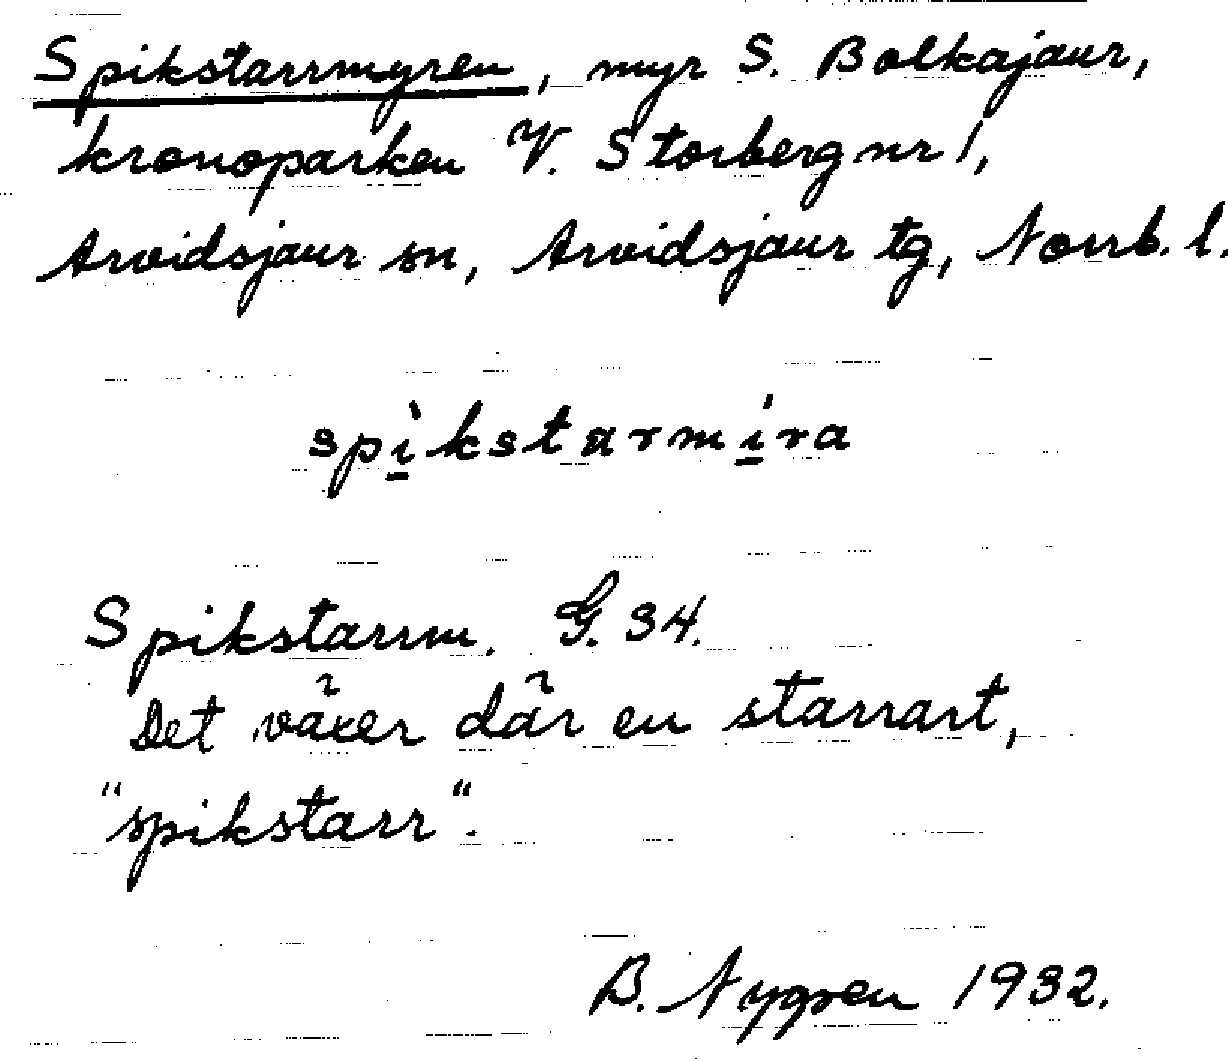 Spikstarrmyren, myr S. Bolkajaur,
kronoparken V. Storberg nr 1,
Arvidsjaur sn, Arvidsjaur tg, Norrb. l.
spì̲kstarmí̲ra
Spikstarrm. G. 34.
Det växer där en starrart,
"spikstarr".
B. Nygren 1932.